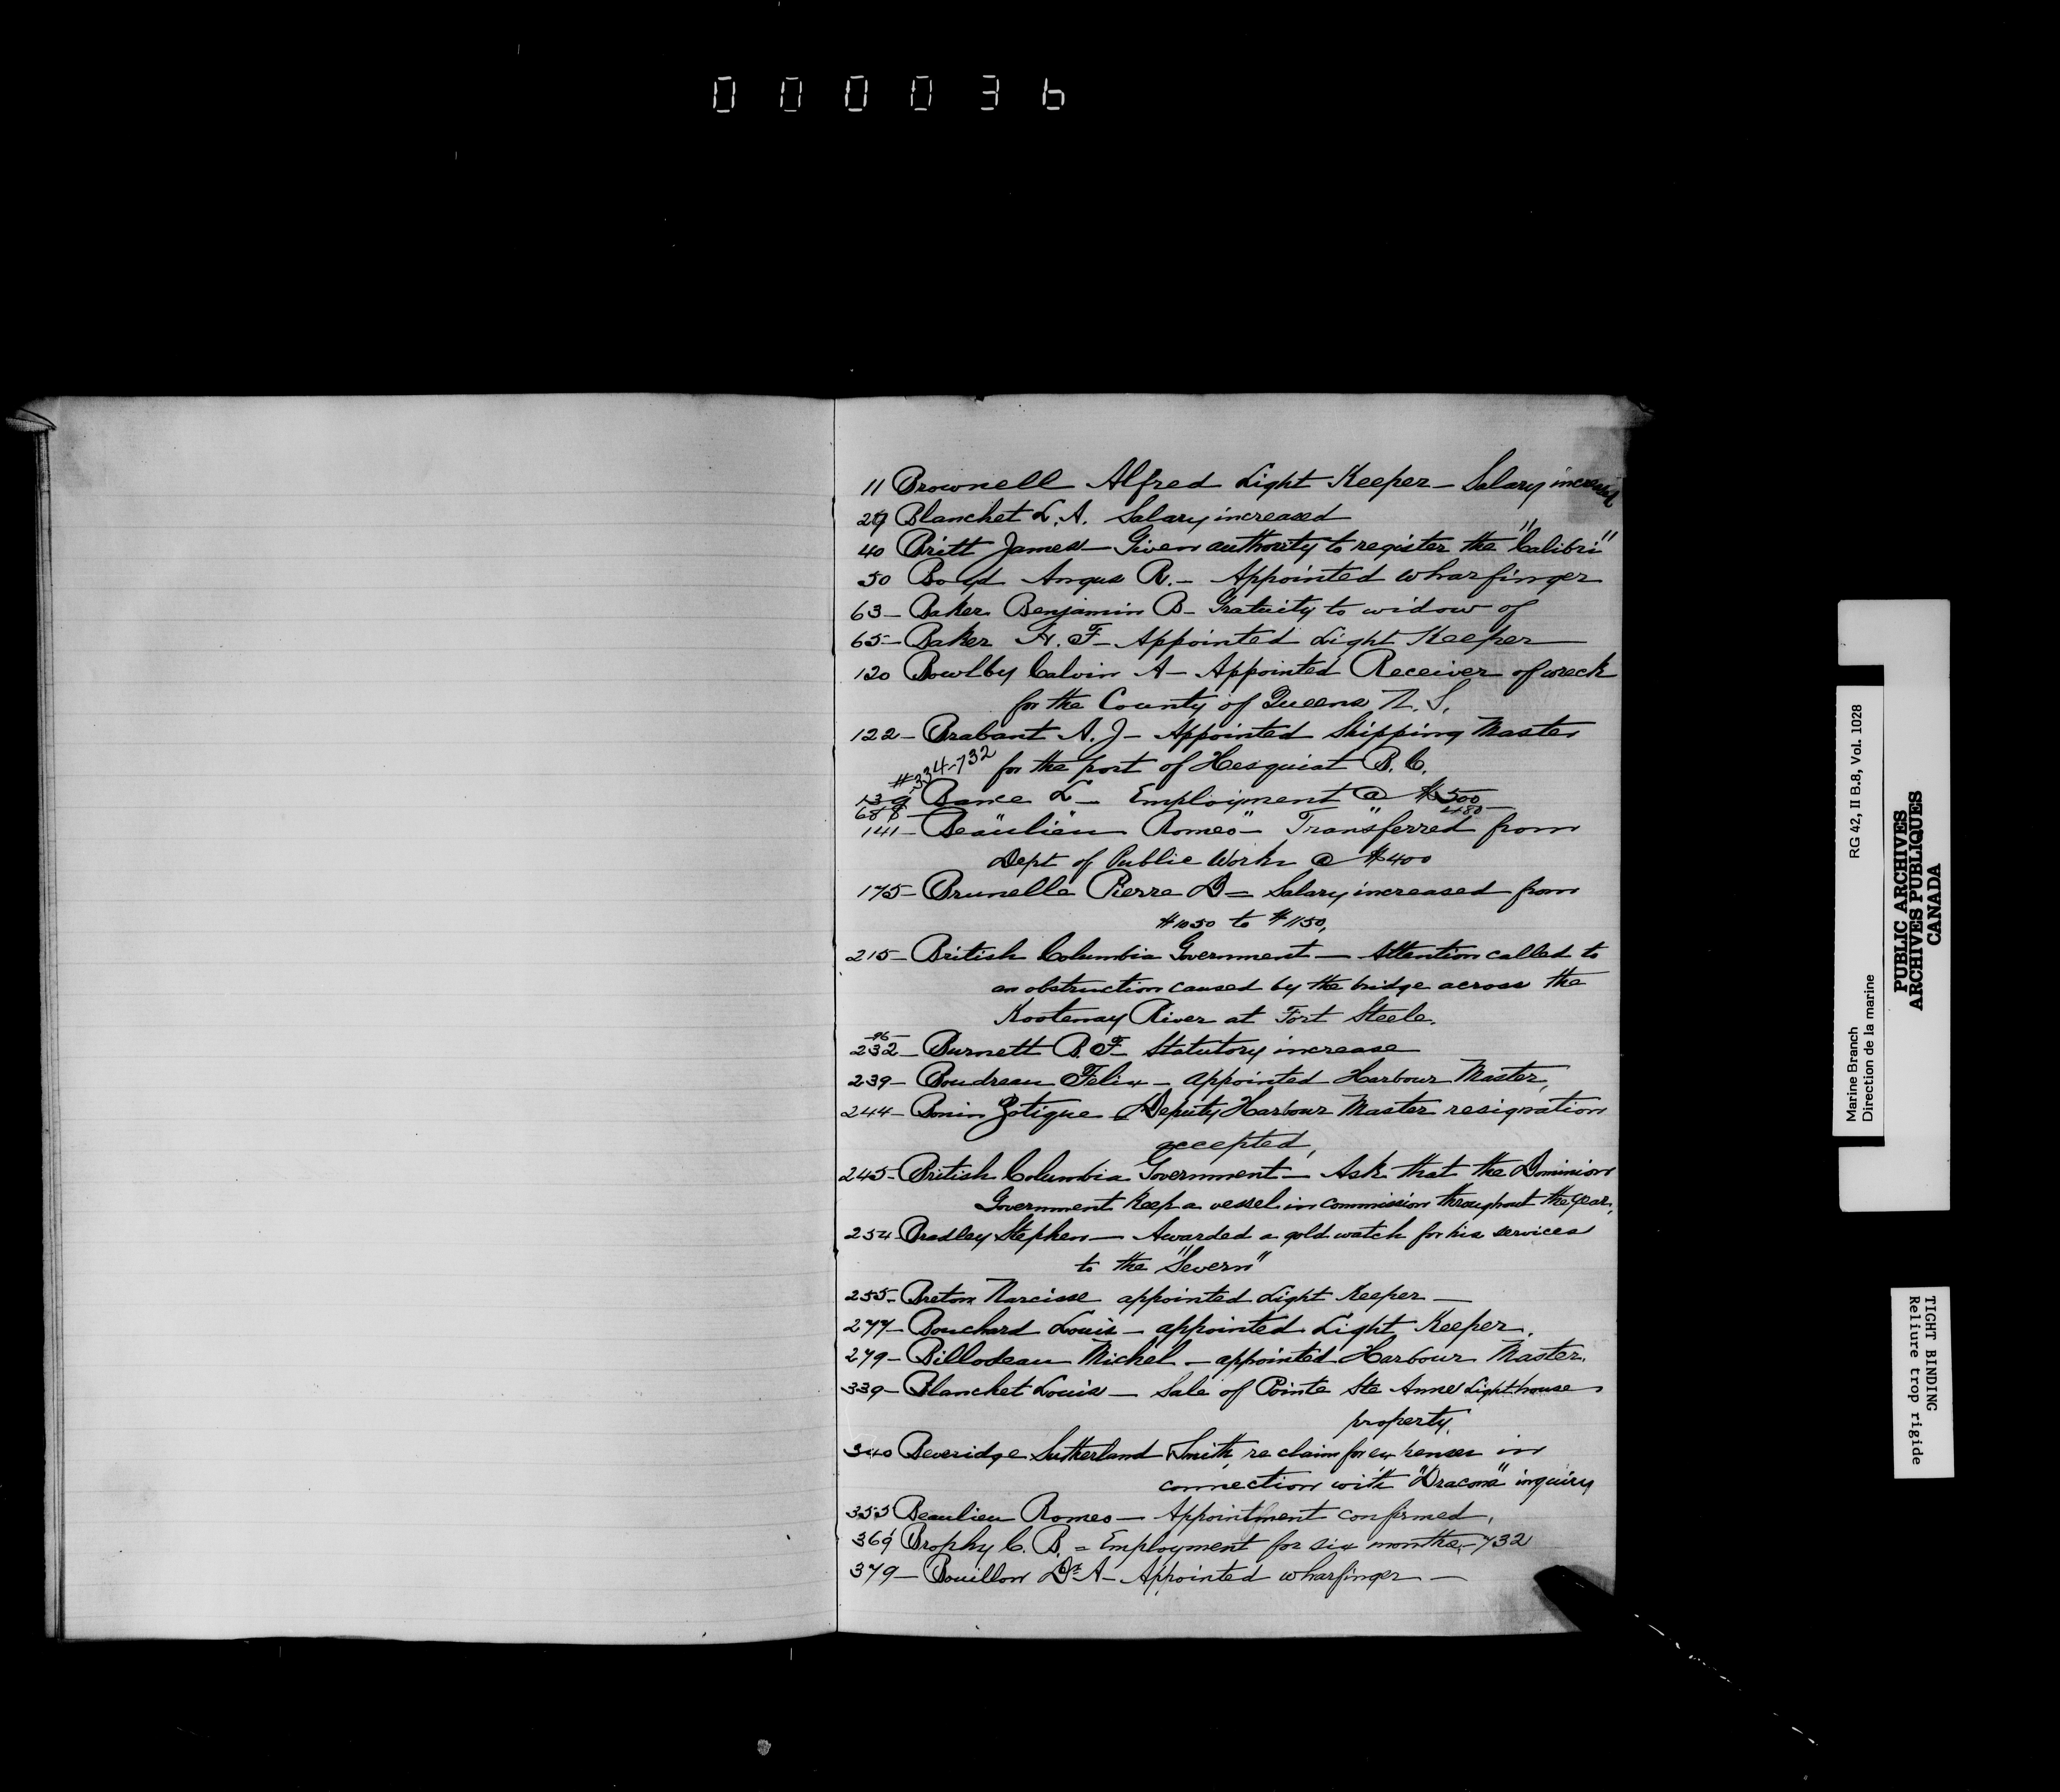 000036
11 Brownell Alfred Light Keeper - Salary increased
29 Blanchet L. A. Salary increased
40 Britt James - Given authority to register the "Calibri"
50 Boyd Angus R. - Appointed wharfinger
63 - Baker Benjamin B - Gratuity to widow of
65 - Baker H. F - Appointed Light Keeper
120 Bowlby Calvin A - Appointed Receiver of wreck
for the County of Queens N. S.
122 - Brabant A. J - Appointed Shipping Master
for the port of Hesquiat B. C.
#334-732
139 Bance L - Employment @ $500
688 " " " 480 -
141 - Beaulieu Romeo - Transferred from
Dept of Public Works @ $400
175 - Brunelle Pierre D = Salary increased from
$1050 to $1150,
215 - British Columbia Government - Attention called to
an obstruction caused by the bridge across the
Kootenay River at Fort Steele.
96
232 - Burnett B. F - Statutory increase
239 - Boudreau Felix - appointed Harbour Master,
244 - Bonin Zotique Deputy Harbour Master resignation
accepted,
245 - British Columbia Government - Ask that the Dominion
Government keep a vessel in commission throughout the year,
254 - Bradley Stephen - Awarded a gold watch for his services
to the "Severn"
255 - Breton Narcisse appointed Light Keeper -
277 - Bouchard Louis - appointed Light Keeper.
279 - Billodeau Michel - appointed Harbour Master.
339 - Blanchet Louis - Sale of Pointe Ste Anne Lighthouse
property.
340 Beveridge Sutherland Smith re claim for expenses in
connection with "Dracona" inquiry
353 Beaulieu Romeo - Appointment confirmed,
369 Brophy C. B. = Employment for six months - 732
379 - Bouillon Dr A - Appointed wharfinger -
Marine Branch
Direction de la marine
RG 42, II B.8, Vol. 1028
PUBLIC ARCHIVES
ARCHIVES PUBLIQUES
CANADA
TIGHT BINDING
Reliure trop rigide